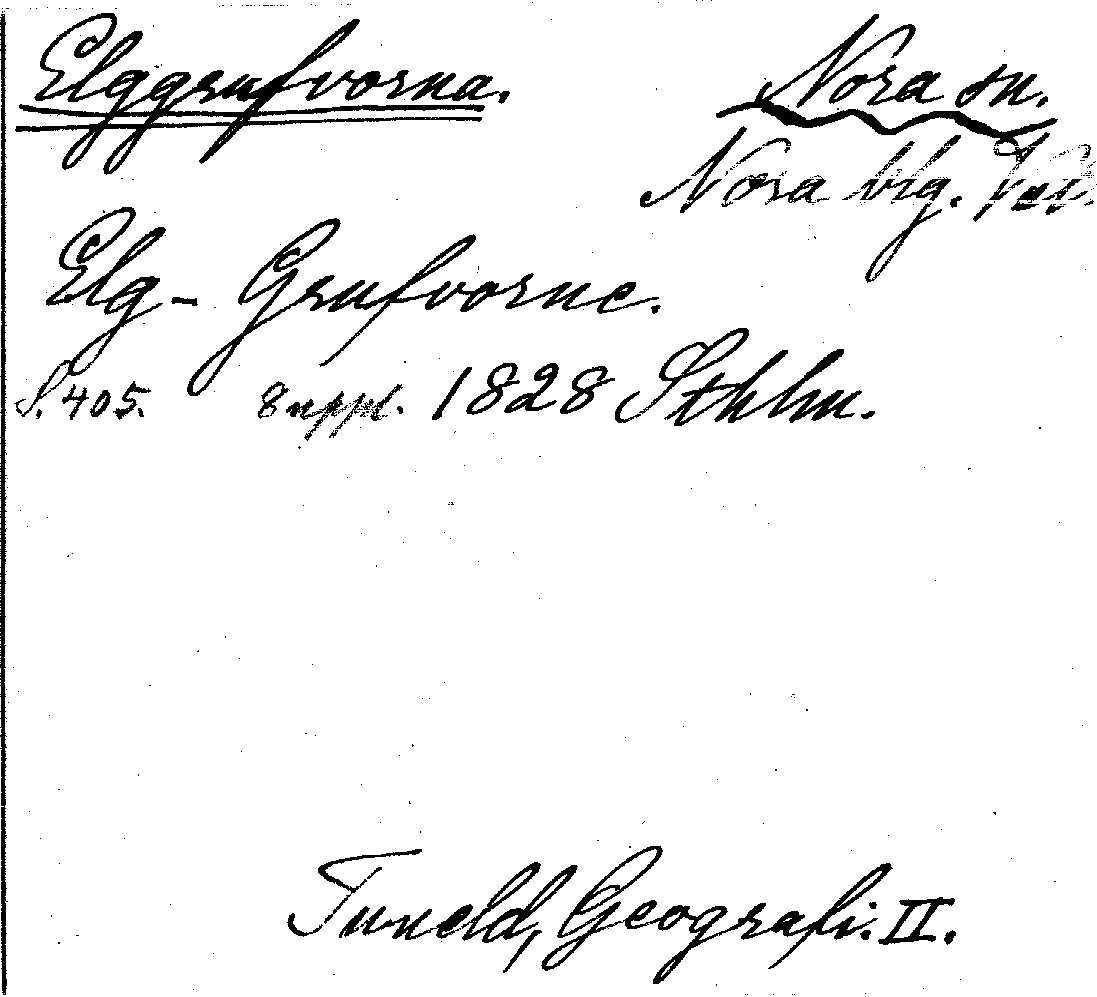 Elggrufvorna. Nora sn.
Nora blg.
Elg-Grufvorne.
S. 405. 8 uppl. 1828 Sthlm.
Tuneld, Geografi. II.